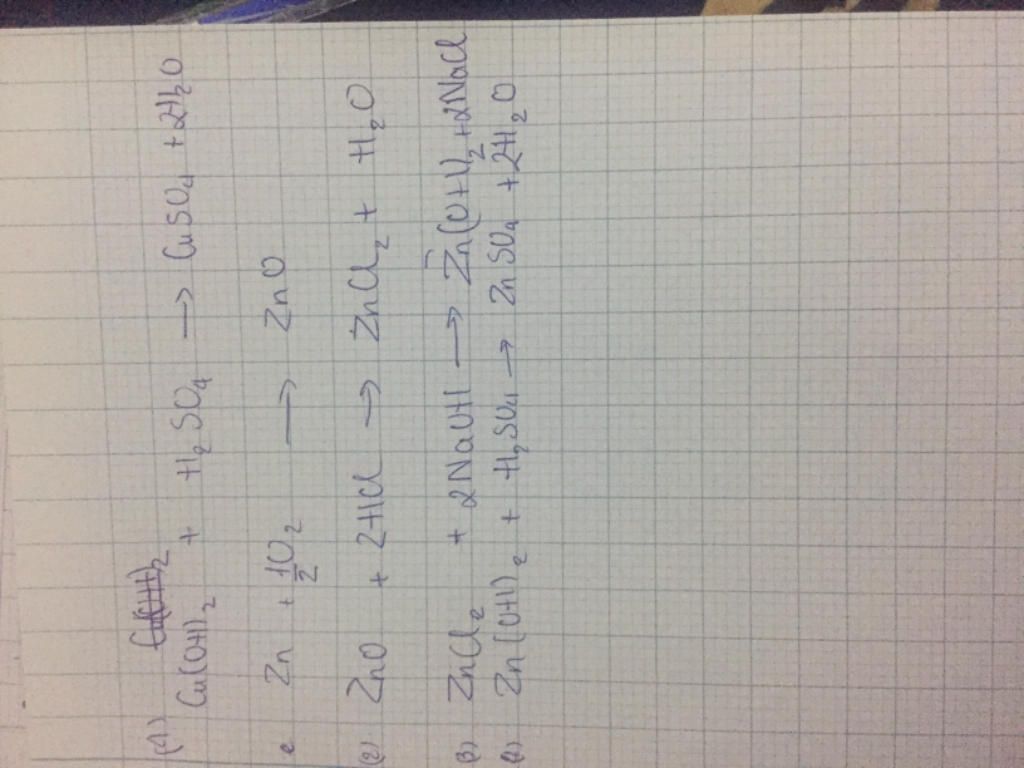 (4)
Cu(OH)₂ + H₂SO₄ → CuSO₄ + 2H₂O
e Zn + 1/2 O₂ → ZnO
(2) ZnO + 2HCl → ZnCl₂ + H₂O
(3) ZnCl₂ + 2NaOH → Zn(OH)₂ + 2NaCl
(4) Zn(OH)₂ + H₂SO₄ → ZnSO₄ + 2H₂O